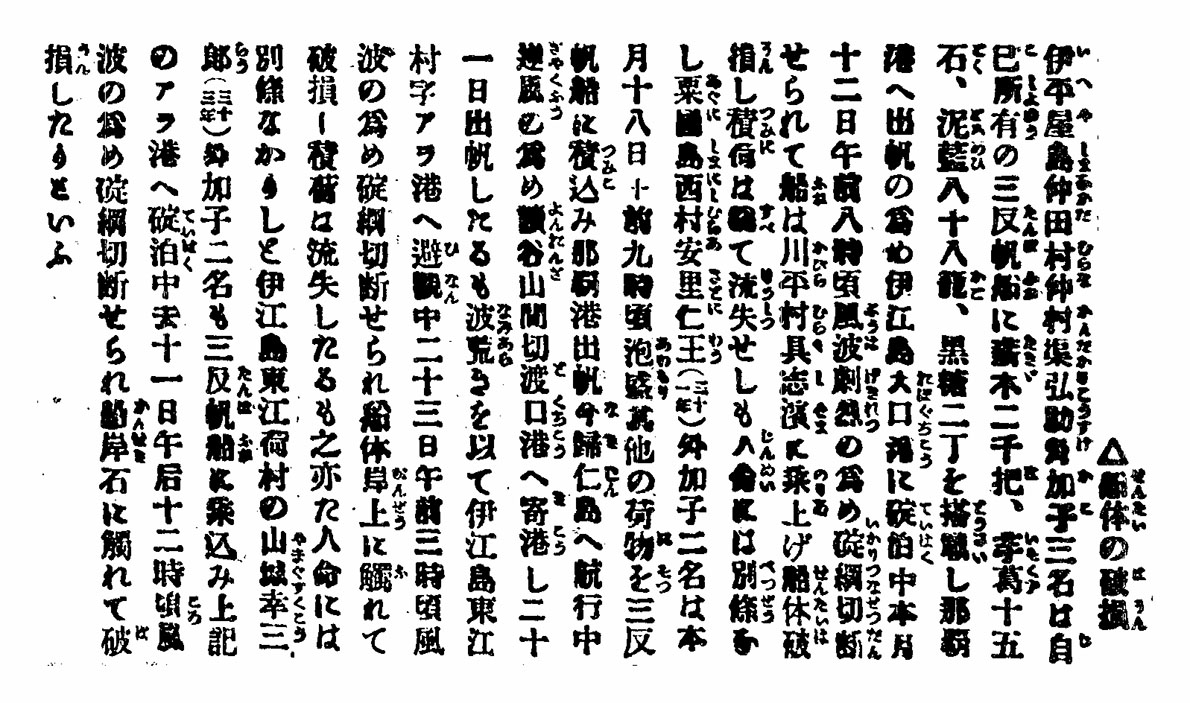 △船体の破損
伊平屋島仲田村仲村渠弘助外加子三名は自
己所有の三反帆船に薪木二千把、芋葛十五
石、泥藍八十八籠、黒糖二丁を搭載し那覇
港へ出帆の為め伊江島大口港に碇泊中本月
十二日午前八時頃風波劇烈の為め碇綱切断
せられて船は川平村具志濱に乗上げ船体破
損し積荷は総て流失せしも人命には別條な
し粟國島西村安里仁王(三十一年)外加子二名は本
月十八日午前九時頃泡盛其他の荷物を三反
帆船に積込み那覇港出帆今歸仁島へ航行中
逆風の為め讀谷山間切渡口港へ寄港し二十
一日出帆したるも波荒きを以て伊江島東江
村字アラ港へ避難中二十三日午前三時頃風
波の為め碇綱切断せられ船体岸上に觸れて
破損し積荷は流失したるも之亦た人命には
別條なかりしと伊江島東江荷村の山城幸三
郎(三十三年)外加子二名も三反帆船に乗込み上記
のアラ港へ碇泊中去十一日午后十二時頃風
波の為め碇綱切断せられ船岸石に觸れて破
損したりといふ